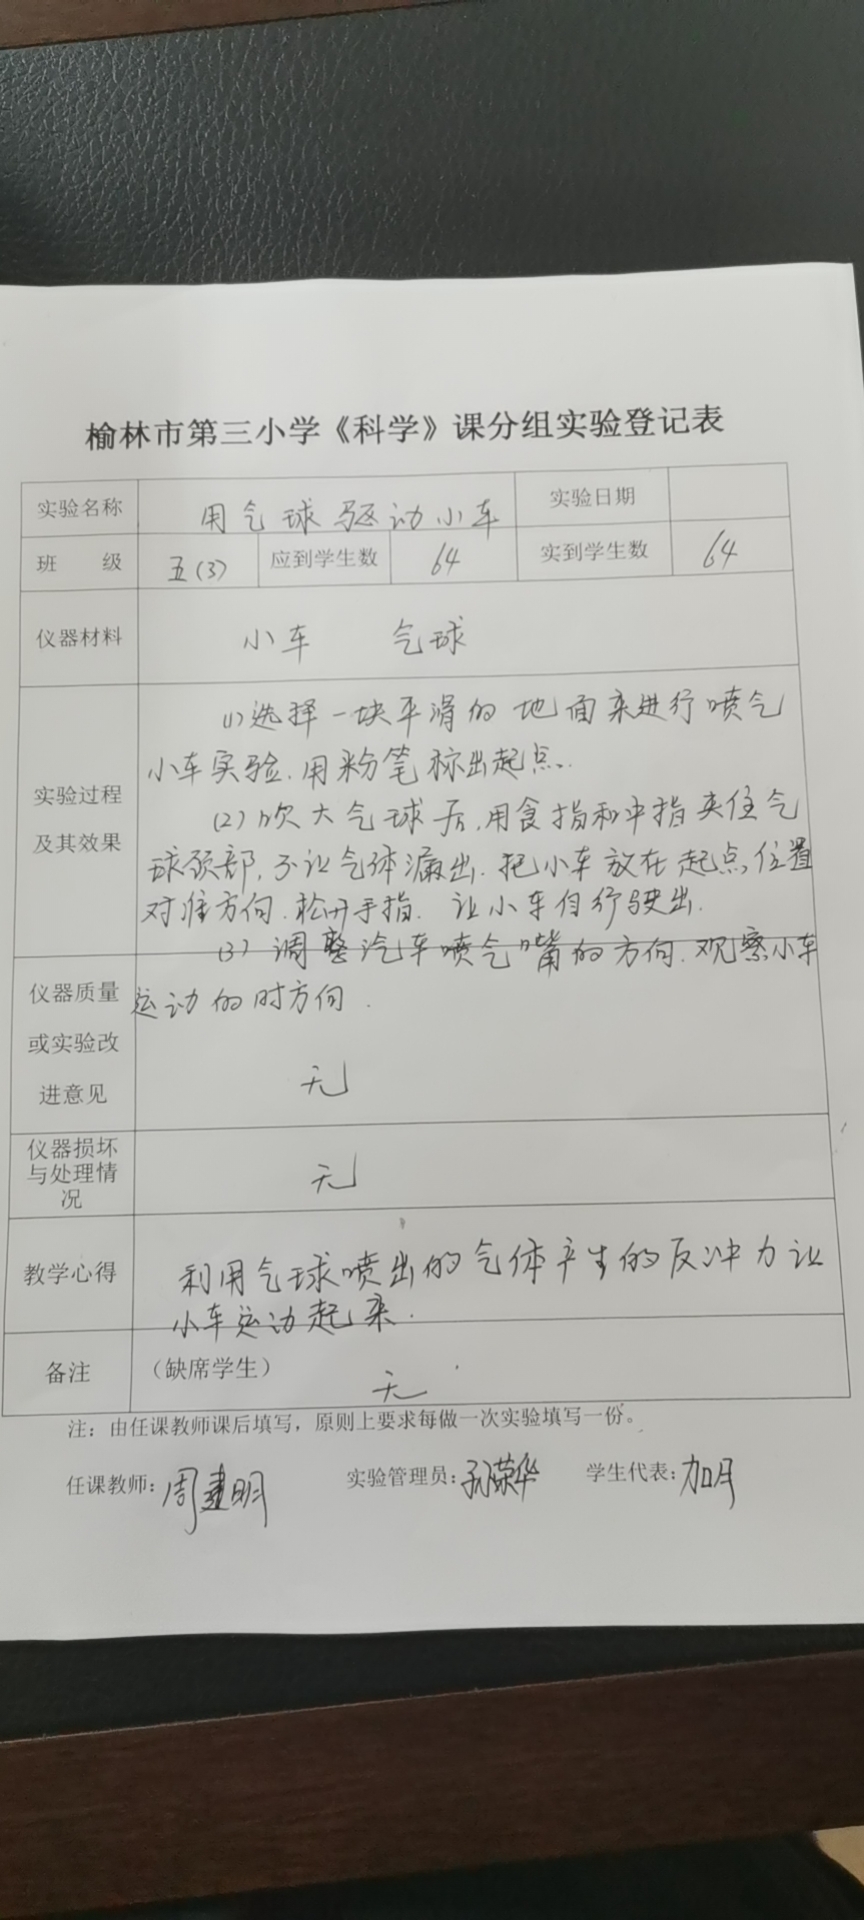 榆林市第三小学《科学》课分组实验登记表
实验名称 用气球驱动小车 实验日期
班 级 五(3) 应到学生数 64 实到学生数 64
仪器材料 小车 气球
实验过程
及其效果
(1)选择一块平滑的地面来进行喷气
小车实验.用粉笔标出起点.
(2)吹大气球后,用食指和中指夹住气
球颈部,不让气体漏出.把小车放在起点,位置
对准方向.松开手指.让小车自行驶出.
(3)调整汽车喷气嘴的方向.观察小车
运动的时方向.
仪器质量
或实验改
进意见
无
仪器损坏
与处理情
况
无
教学心得
利用气球喷出的气体产生的反冲力让
小车运动起来.
备注 (缺席学生) 无
注: 由任课教师课后填写, 原则上要求每做一次实验填写一份。
任课教师: 周建明 实验管理员: 孙荣华 学生代表: